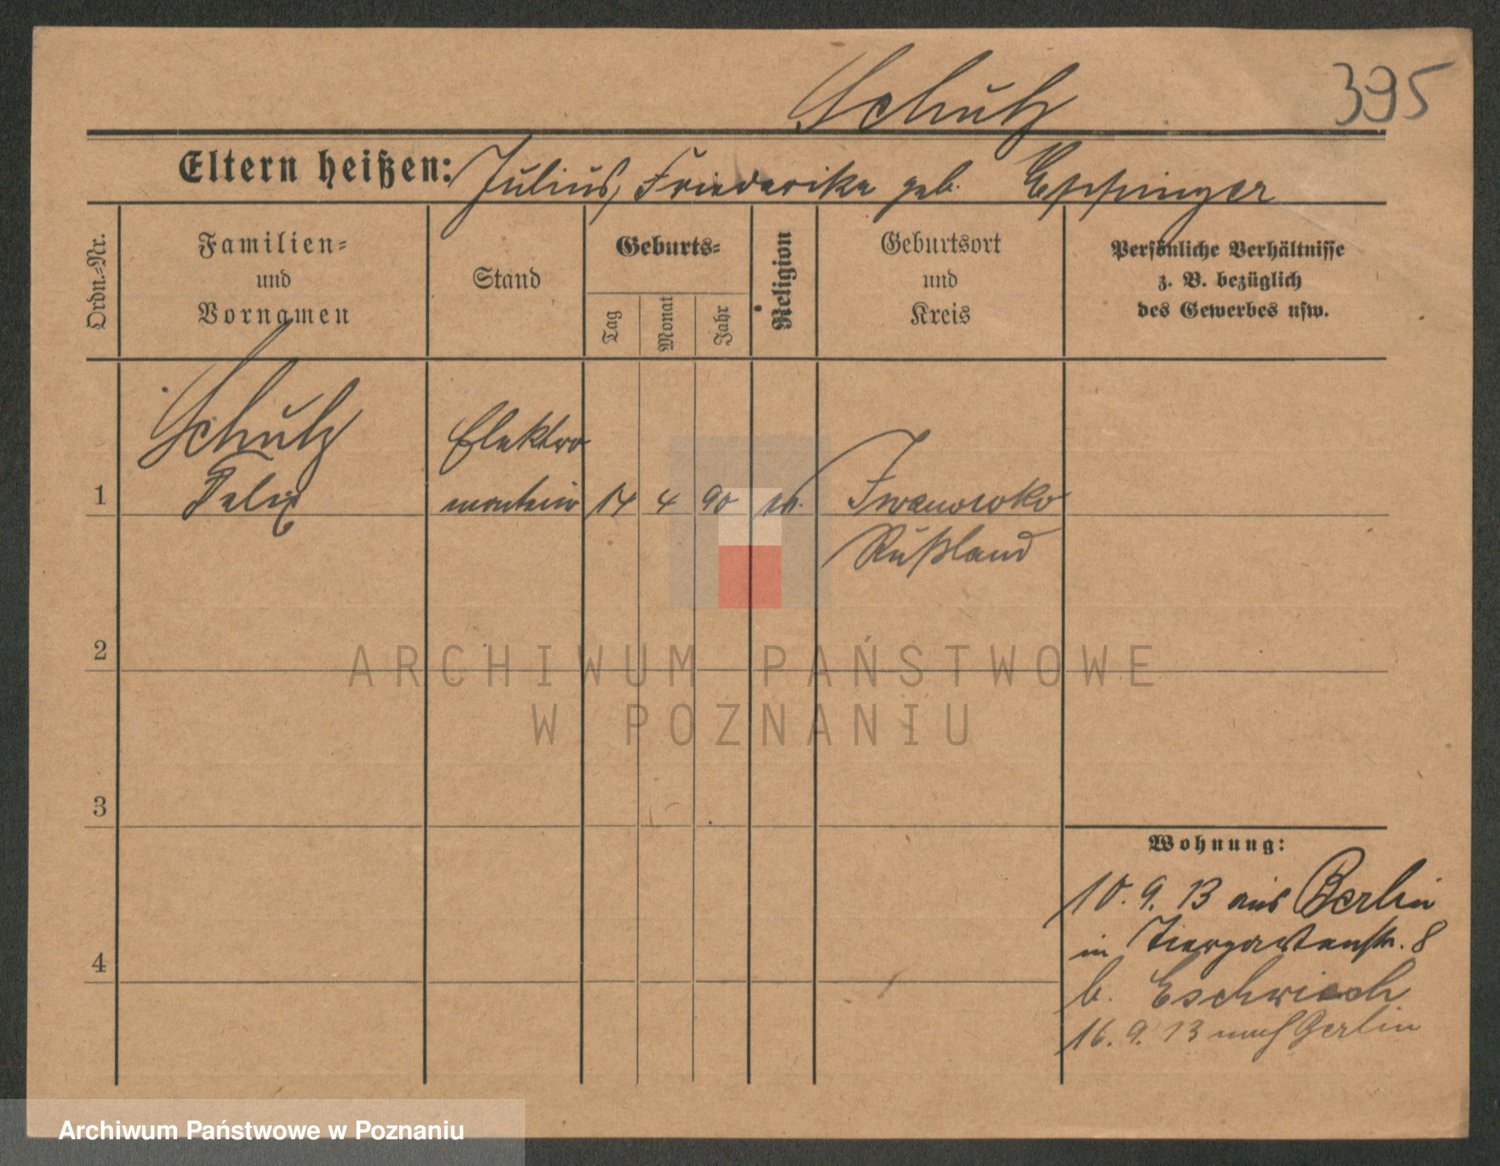 Schulz
395
Eltern heißen: Julius, Friederike geb. Eppinger
Ordn.-Nr.
Familien-
und
Vornamen
Stand
Geburts-
Tag
Monat
Jahr
Religion
Geburtsort
und
Kreis
Persönliche Verhältnisse
z. B. bezüglich
des Gewerbes usw.
Schulz
Felix
Elektro
monteur
1
14
4
90
ev.
Iwanowoko
Rußland
ARCHIWUM PAŃSTWOWE
W POZNANIU
2
3
4
Wohnung:
10. 9. 13 aus Berlin
in Tiergartenstr. 8
b.
16. 9. 13 nach Berlin
Archiwum Państwowe w Poznaniu